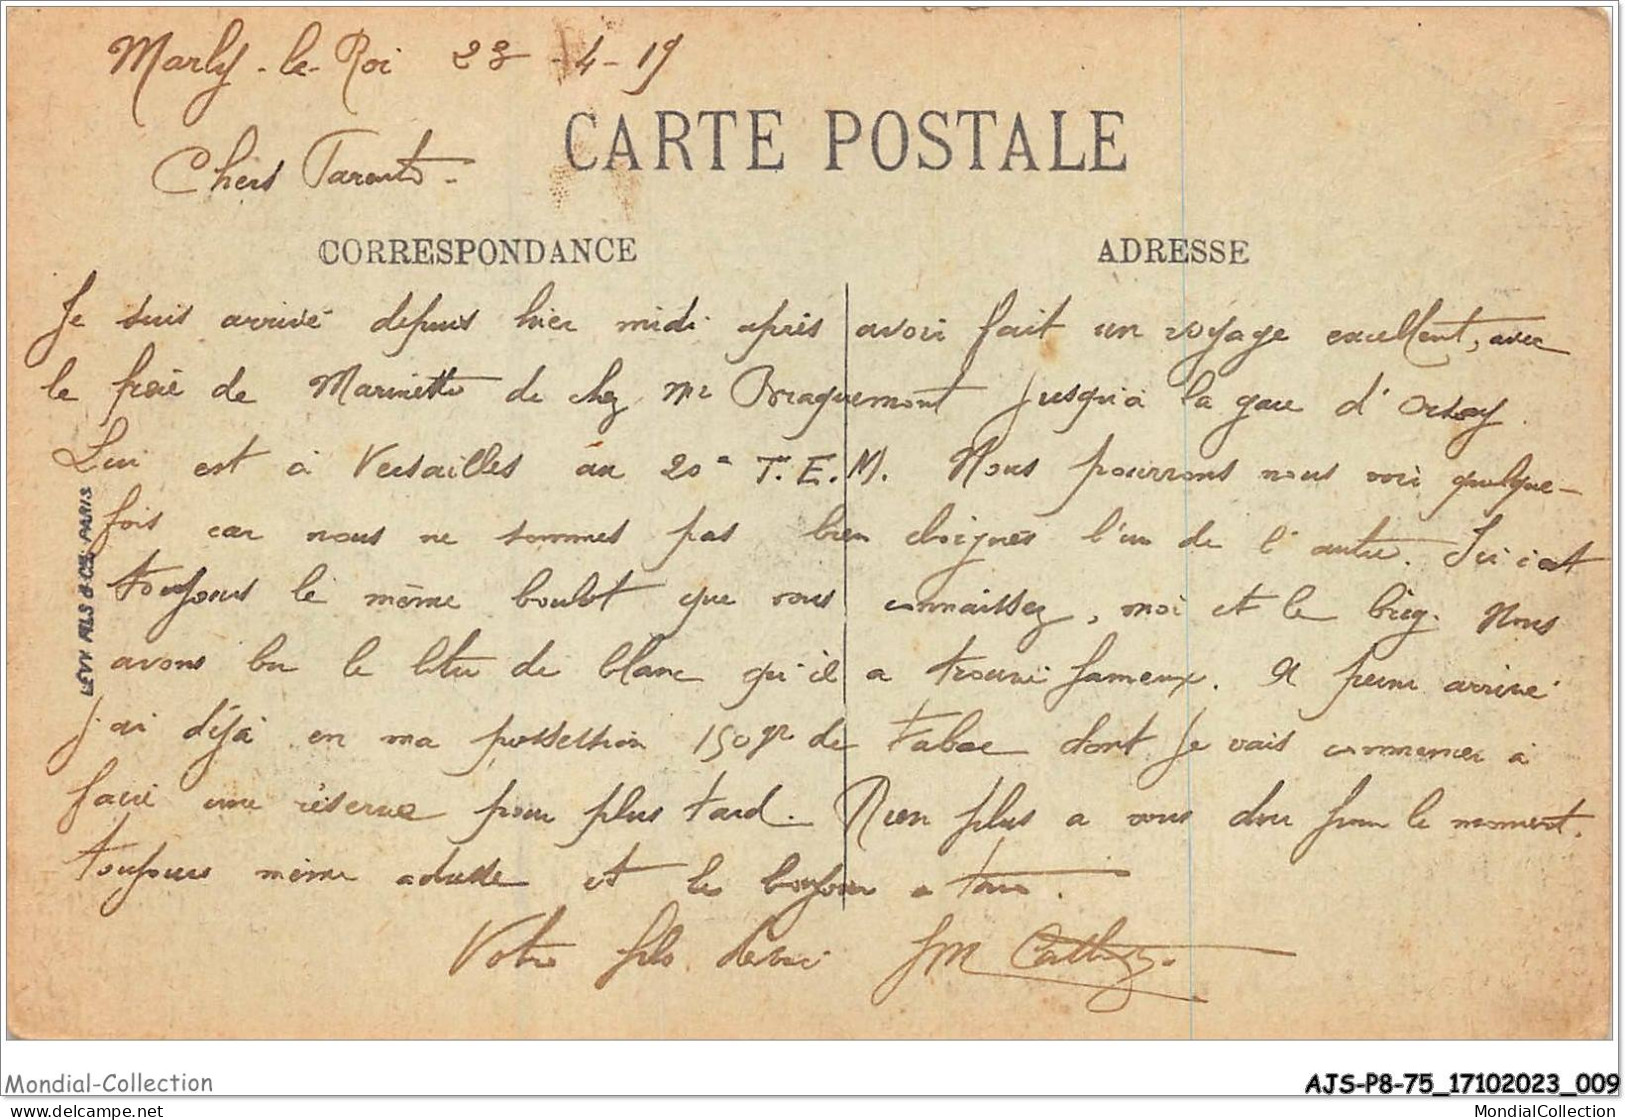 Marly-le-Roi 23-4-19
CARTE POSTALE
Chers Parents.
CORRESPONDANCE
ADRESSE
Je suis arrivé depuis hier midi après avoir fait un voyage excellent, avec
le frère de Marinette de chez Mr Braquemont jusqu'à la gare d'Orsay.
Lui est à Versailles au 20e T.E.M. Nous pourrons nous voir quelque-
fois car nous ne sommes pas bien éloignés l'un de l'autre. Ici c'est
toujours le même boulot que vous connaissez, moi et le bicy. Nous
avons bu le litre de blanc qu'il a trouvé fameux. A peine arrivé
j'ai déjà en ma possession 150gr de tabac dont je vais commencer à
faire une réserve pour plus tard. Rien plus a vous dire pour le moment.
toujours même adresse et le bonjour a tous.
Votre fils dévoué JM
LEVY FILS & CIE PARIS
Mondial-Collection
AJS-P8-75_17102023_009
www.delcampe.net
MondialCollection